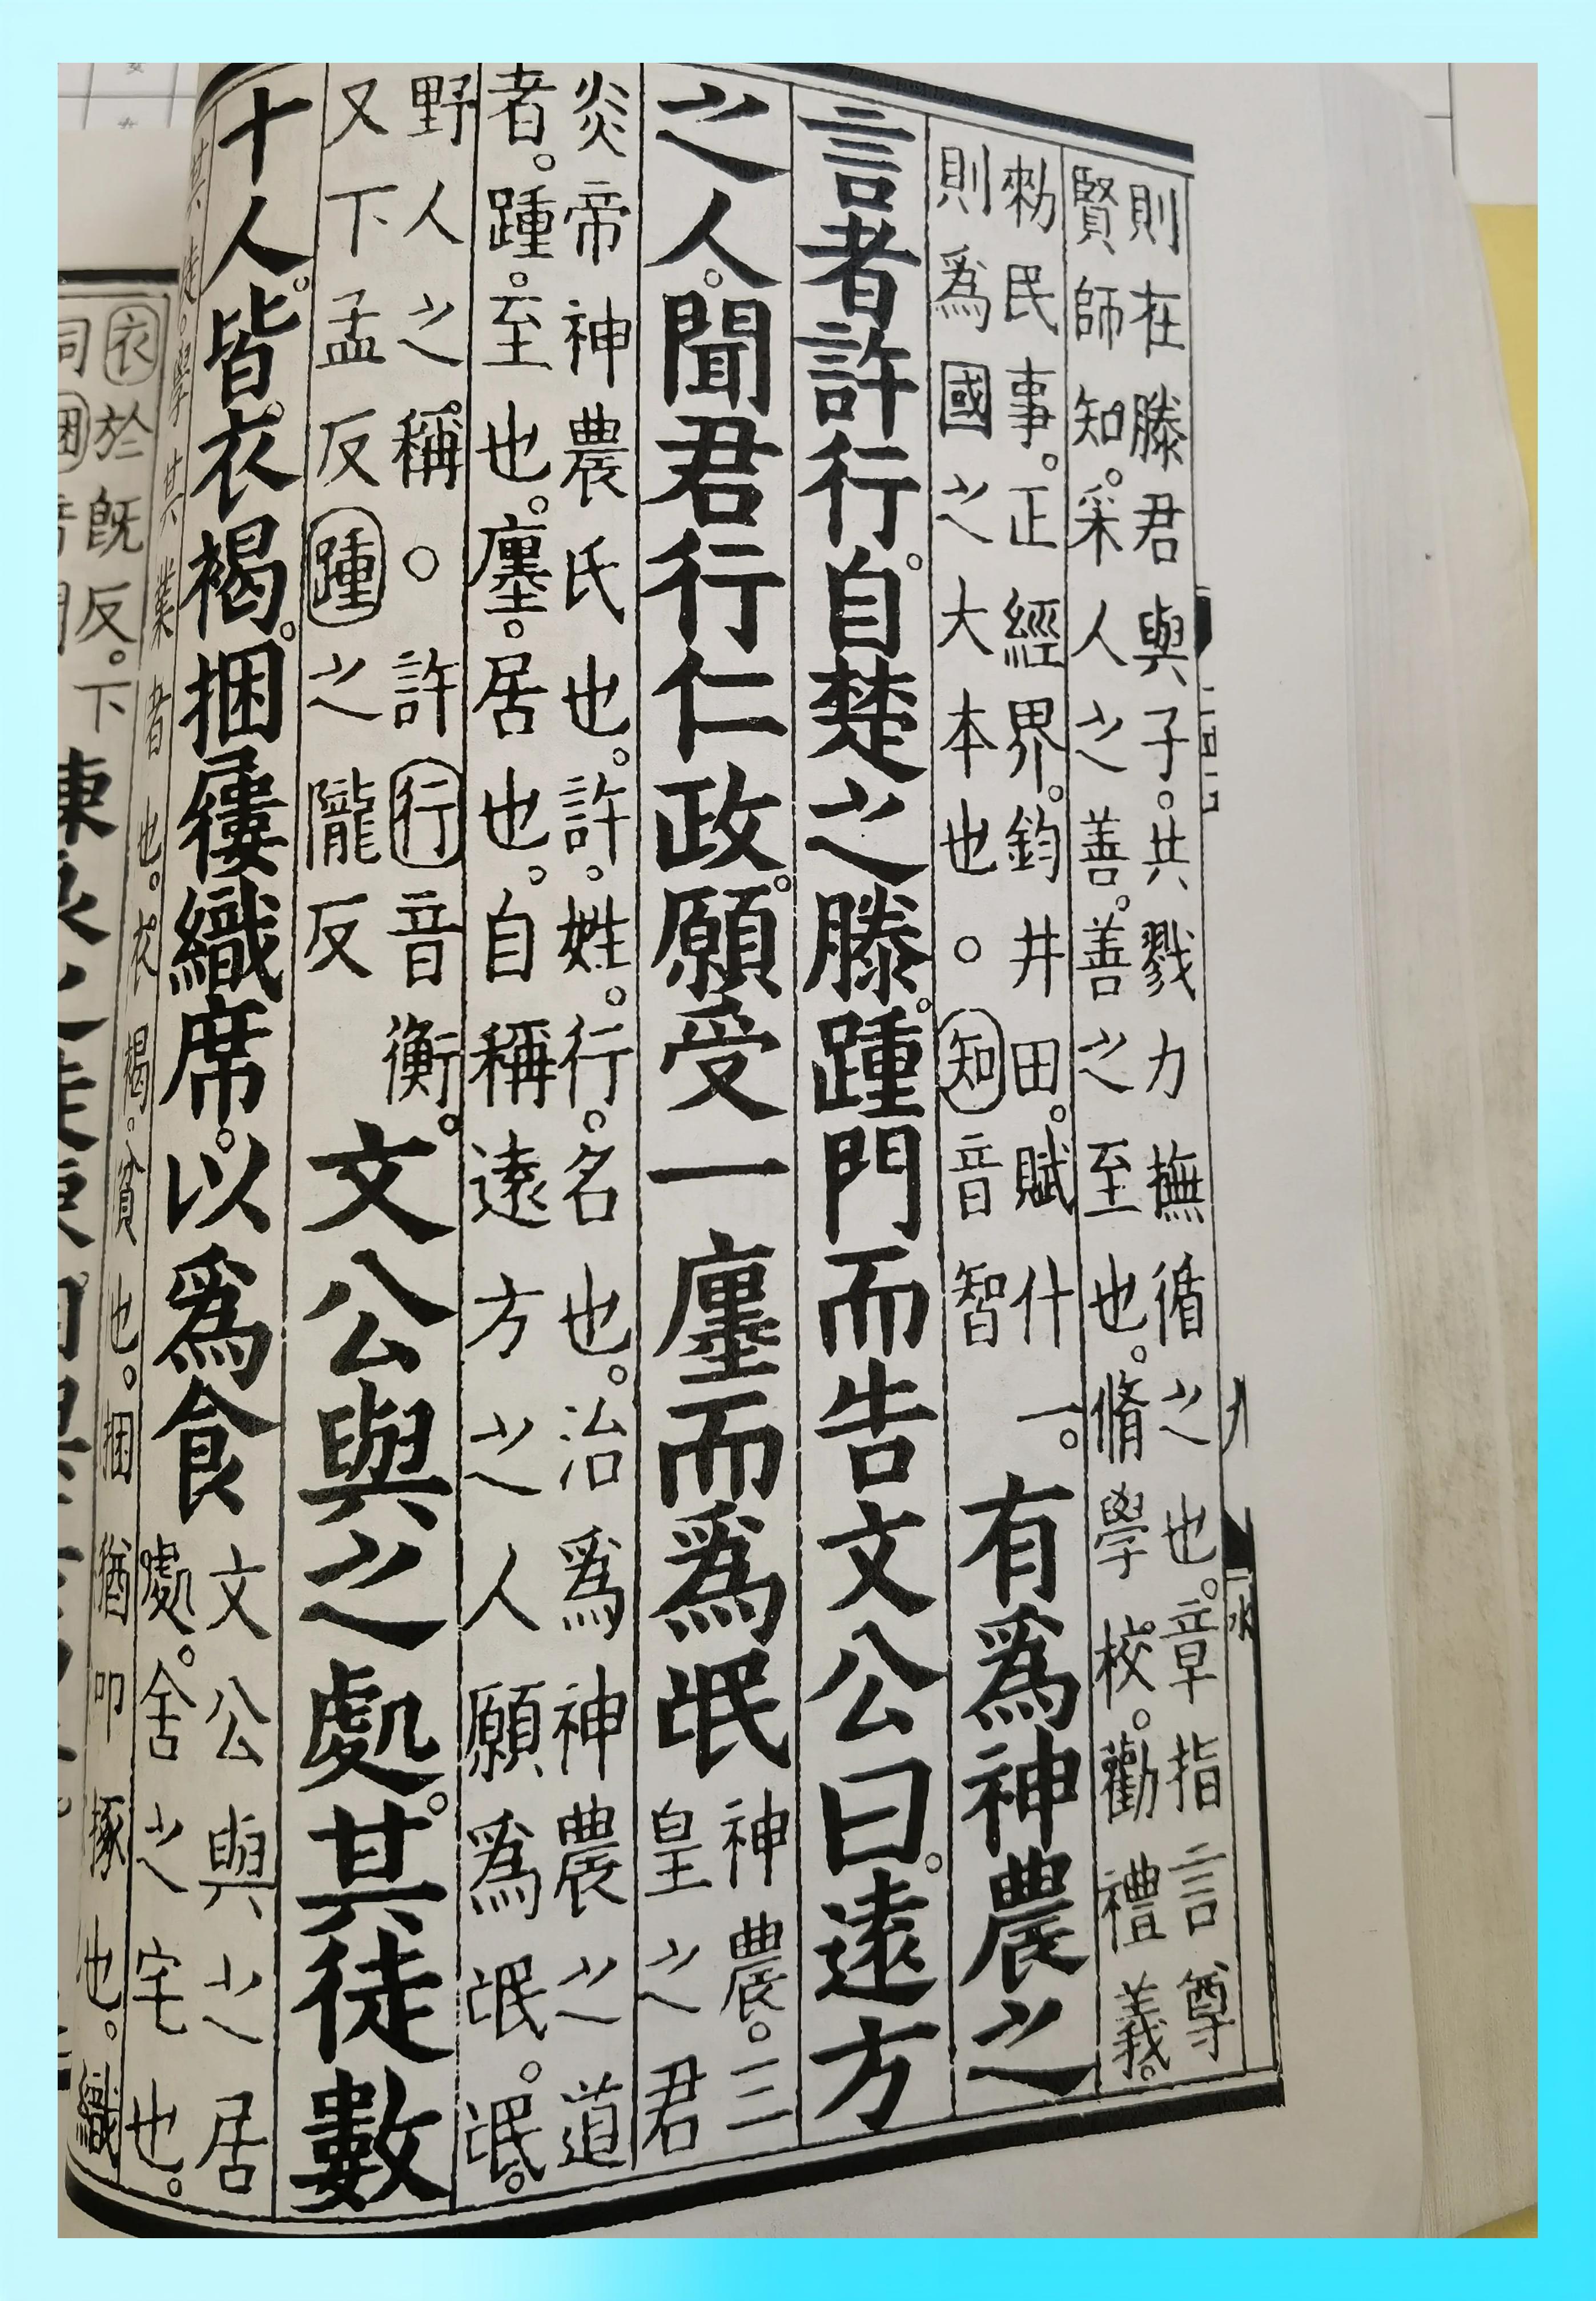 則在滕君與子。共戮力撫循之也。章指言尊
賢師知。采人之善。善之至也。脩學校。勸禮義。
勑民事。正經界。鈞井田。賦什一。
則爲國之大本也〇知音智
有爲神農之
言者許行。自楚之滕。踵門而告文公曰。遠方
之人。聞君行仁政。願受一廛而爲氓
神農。三
皇之君
炎帝神農氏也。許。姓。行。名也。治爲神農之道
者。踵。至也。廛。居也。自稱遠方之人願爲氓。氓。
野人之稱〇許行音衡。
又下孟反踵之隴反
文公與之處。其徒數
十人。皆衣褐。捆屨織席。以爲食
文公與之居
處。舍之宅也。
其徒。學其業者也。衣褐。貧也。捆猶叩㧻也。織
衣於既反。下
同捆音